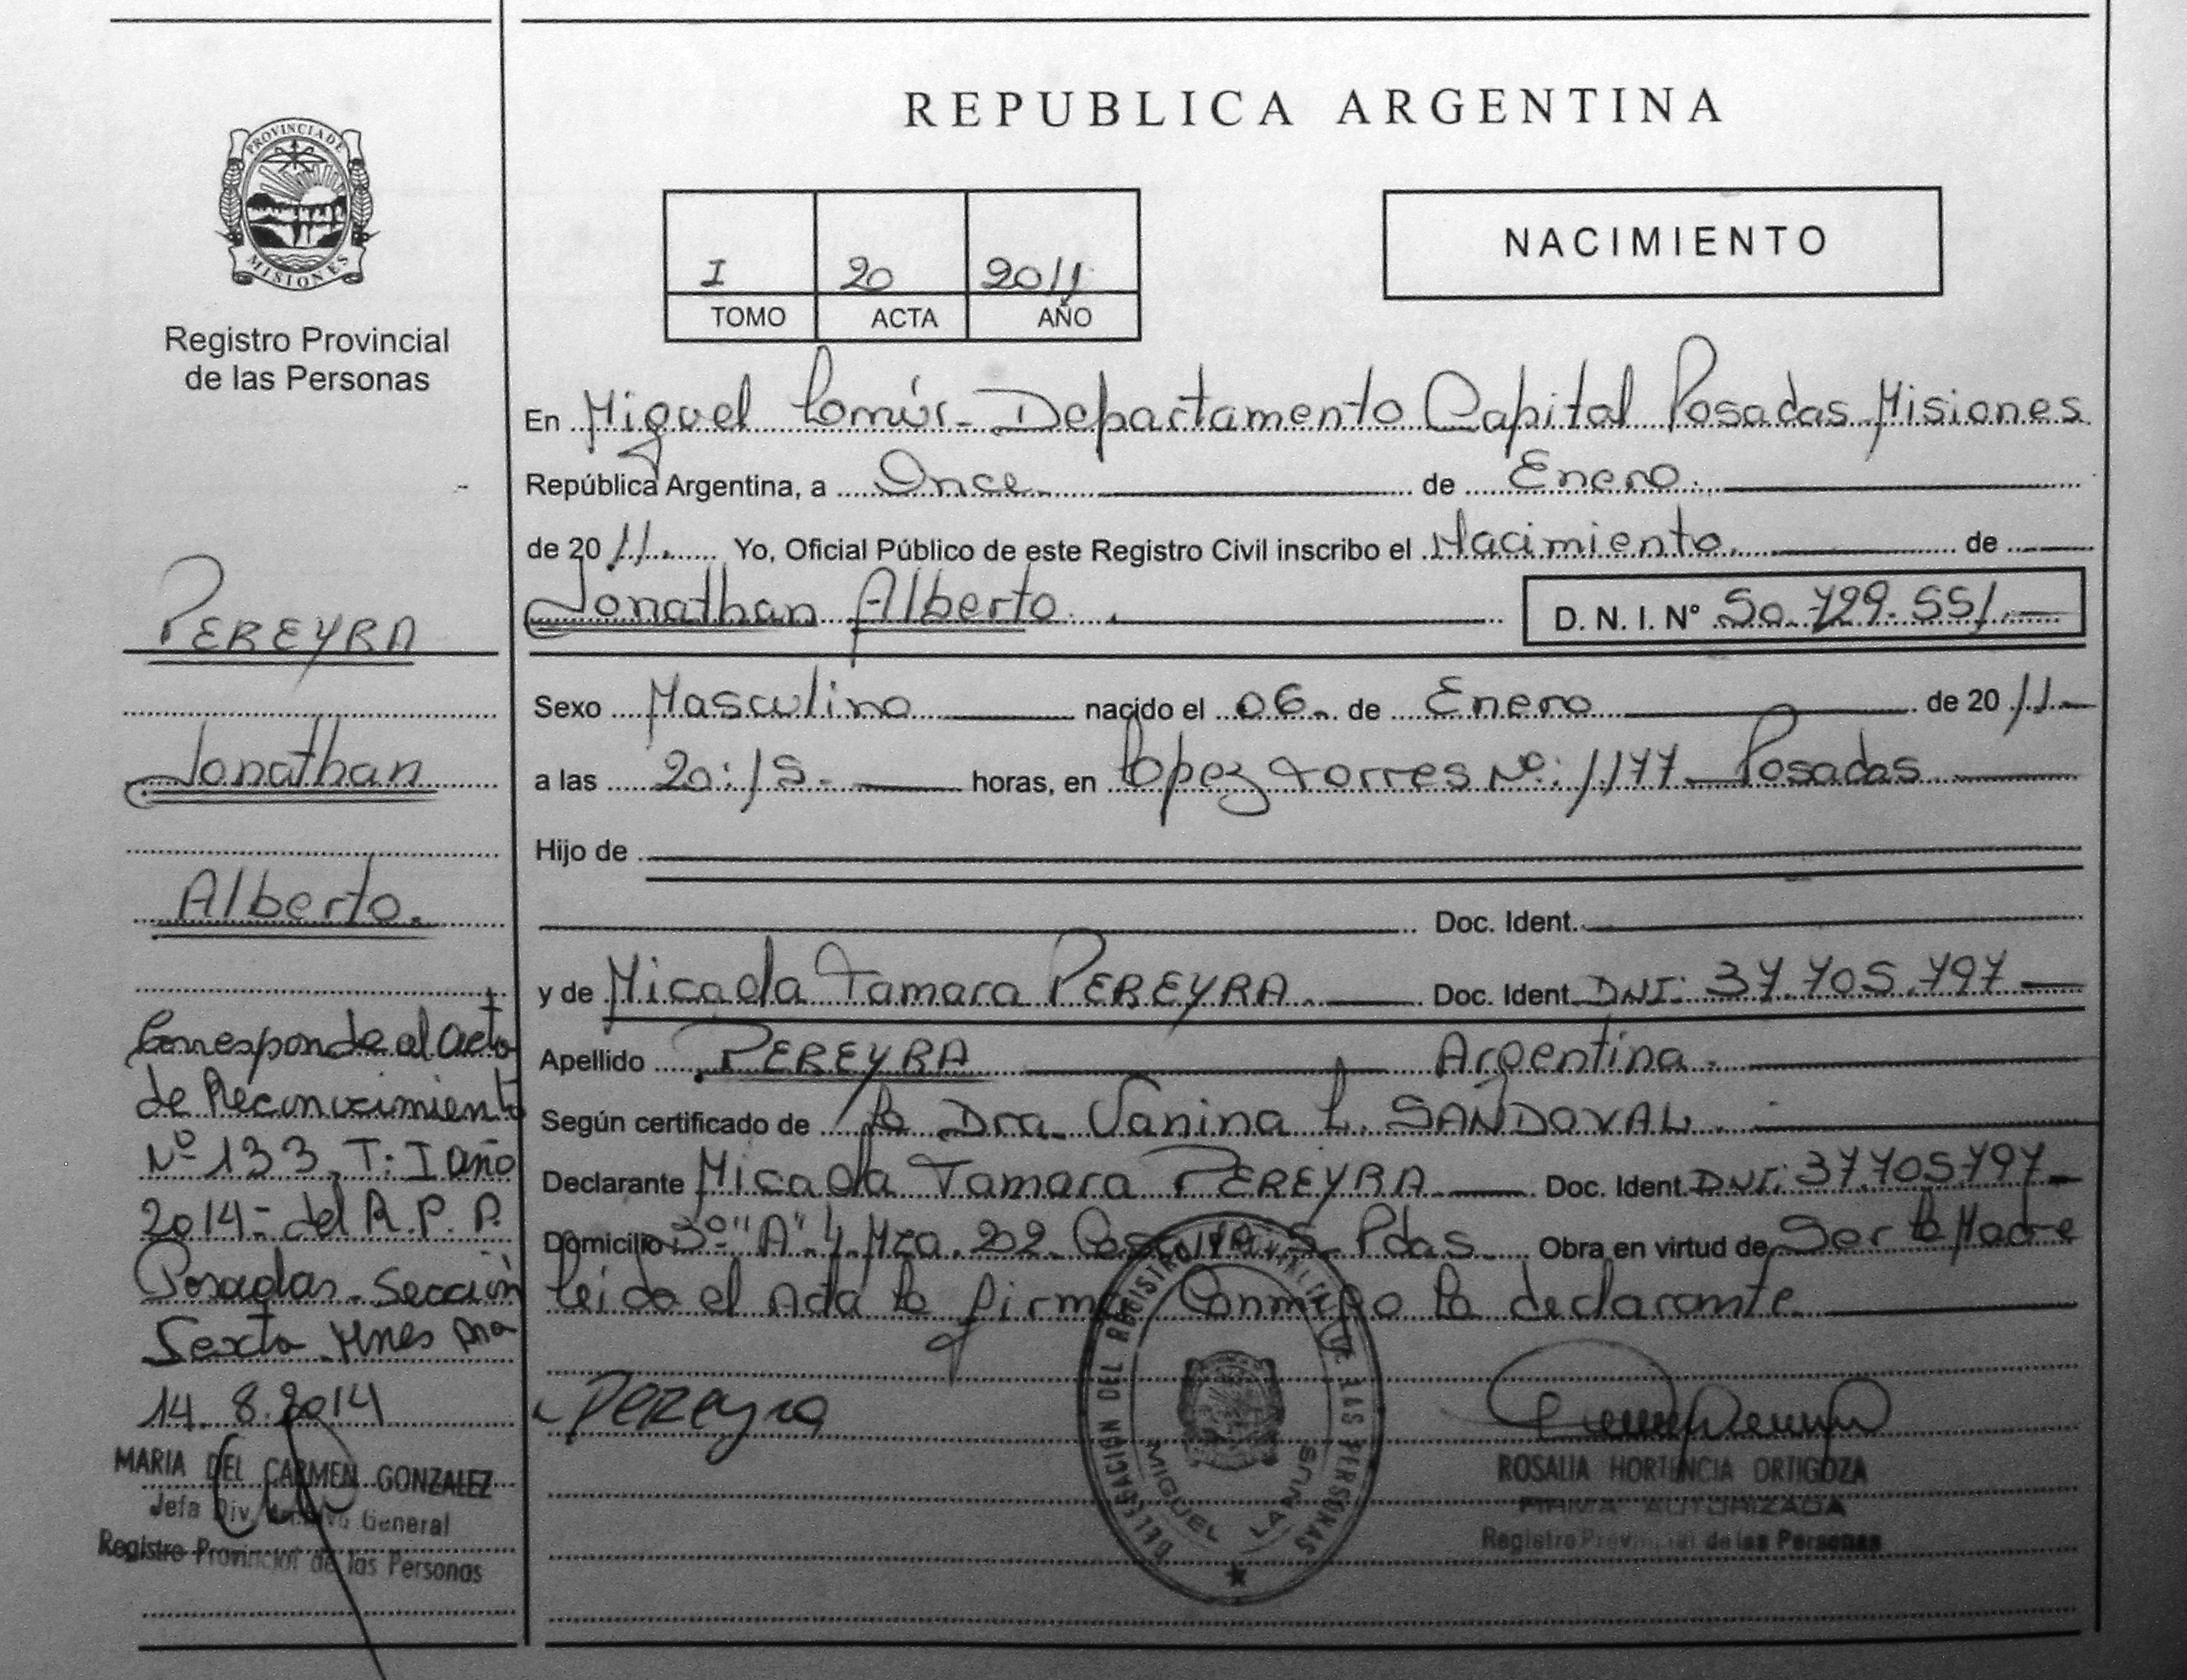 PROVINCIA DE
MISIONES
Registro Provincial
de las Personas
PEREYRA
Jonathan
Alberto.
Corresponde al acta
de Reconocimiento
Nº 133. T: I año
2014- del R. P. P.
Posadas. Sección
Sexta Mnes
14. 8. 2014
MARIA DEL CARMEN GONZALEZ
Jefa Div. Archivo General
Registro Provincial de las Personas
REPUBLICA ARGENTINA
I 20 2011
TOMO ACTA AÑO
NACIMIENTO
En Miguel Lanús - Departamento Capital Posadas Misiones
República Argentina, a Once de Enero.
de 2011. Yo, Oficial Público de este Registro Civil inscribo el Nacimiento de
Jonathan Alberto. D. N. I. Nº 50.729.551.
Sexo Masculino nacido el 06. de Enero de 2011.
a las 20:15. horas, en Lopez Torres Nº: 1.177 Posadas
Hijo de
Doc. Ident.
y de Micaela Tamara PEREYRA. Doc. Ident. DNI: 37.705.797
Apellido PEREYRA Argentina.
Según certificado de la Dra. Vanina L. SANDOVAL.
Declarante Micaela Tamara PEREYRA. Doc. Ident. DNI: 37.705.797
Domicilio 3º "A" 4. Mza. 202. Pdas. Obra en virtud de Ser la Madre
leído el Acta la firma Conmigo la declarante
Pereyra
DELEGACION DEL REGISTRO PROVINCIAL DE LAS PERSONAS
MIGUEL LANUS
ROSALIA HORTENCIA ORTIGOZA
FIRMA AUTORIZADA
Registro Provincial de las Personas